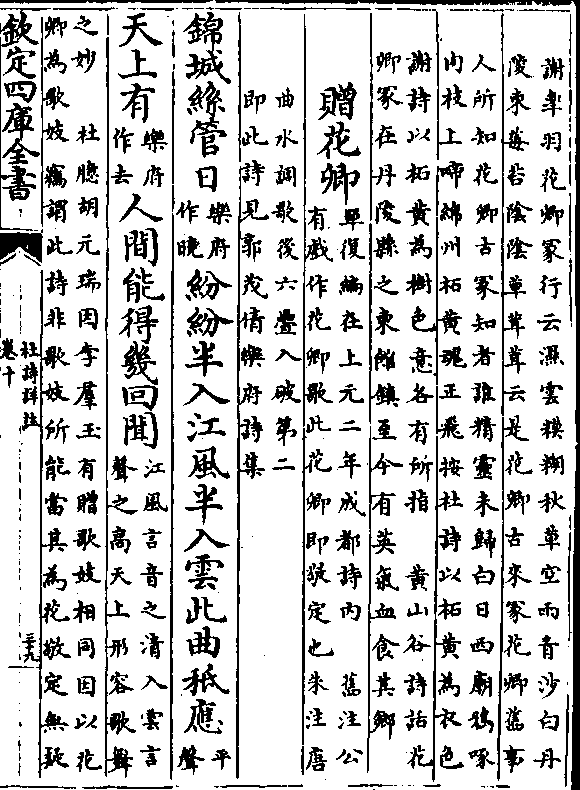 謝皋羽花卿冢行云濕雲糢糊秋草空雨青沙白丹
陵東莓苔陰陰草茸茸云是花卿古來冢花卿舊事
人所知花卿古冢知者誰精靈未歸白日西廟鴉啄
肉枝上啼綿州柘黃魂正飛按杜詩以柘黃為衣色
謝詩以柘黃為樹色意各有所指 黃山谷詩話花
卿冢在丹陵縣之東館鎮至今有英氣血食其鄉
贈花卿
單復編在上元二年成都詩內 舊注公
有戲作花卿歌此花卿即敬定也 朱注唐
曲水調歌後六疊入破第二
即此詩見郭茂倩樂府詩集
錦城絲管日樂府作曉紛紛半入江風半入雲此曲秪應平聲
天上有樂府作去人間能得幾回聞
江風言音之清入雲言
聲之高天上形容歌舞
之妙 杜臆胡元瑞因李羣玉有贈歌妓相同因以花
卿為歌妓竊謂此詩非歌妓所能當其為花敬定無疑
欽定四庫全書
杜詩詳註
卷十
三十九